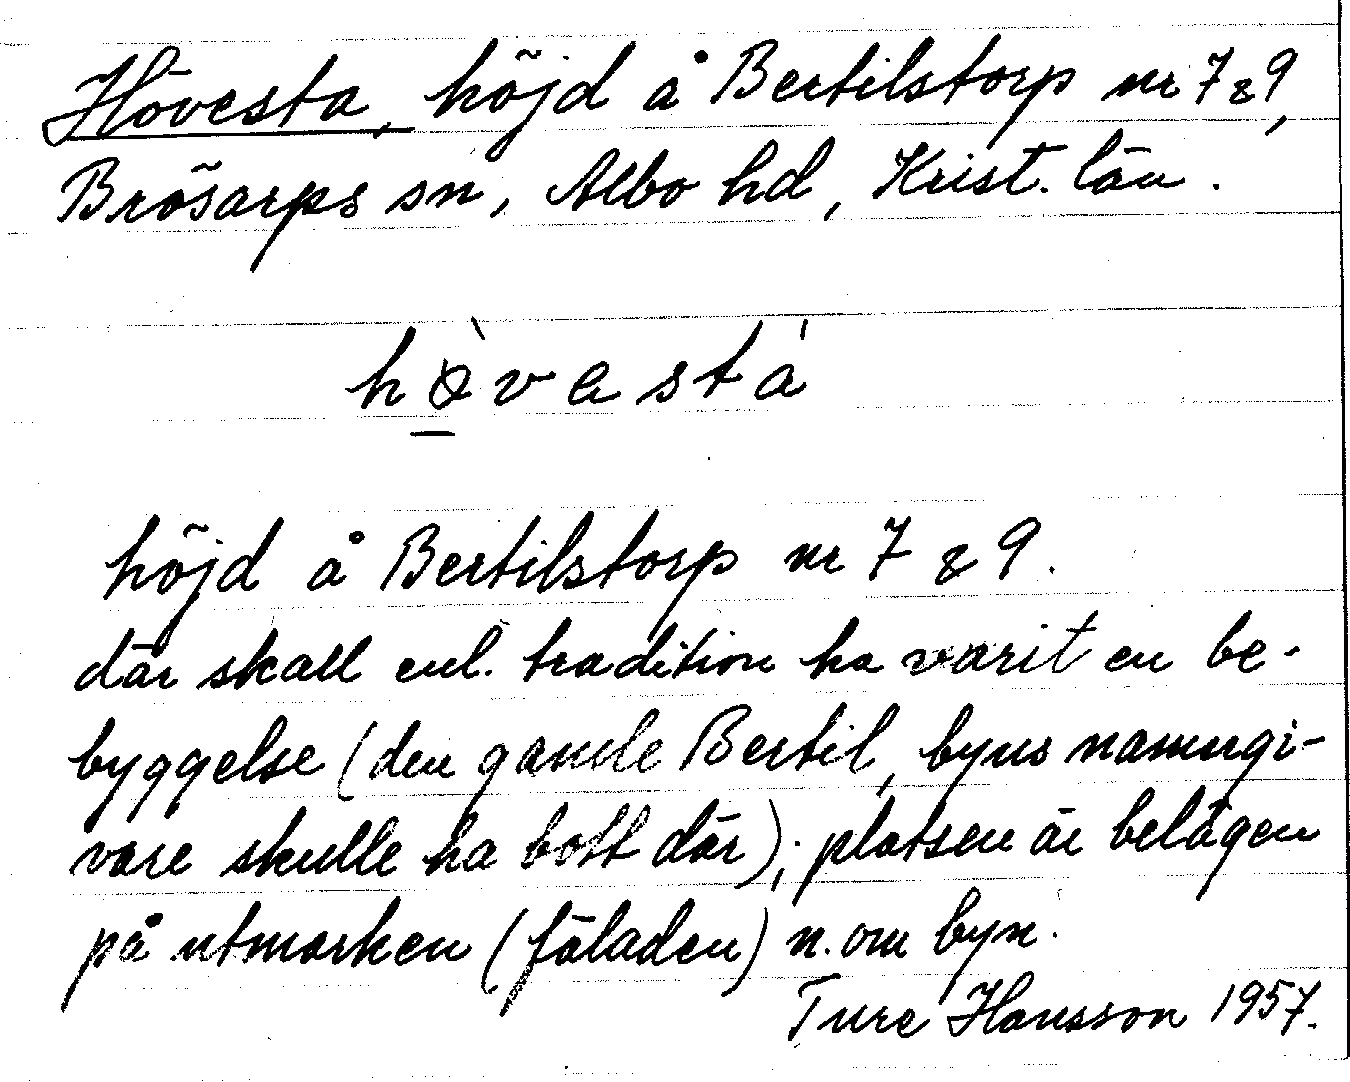 Hövesta, höjd å Bertilstorp nr 7 & 9,
Brösarps sn, Albo hd, Krist. län.
hø̀vastá
höjd å Bertilstorp nr 7 & 9.
där skall enl. tradition ha varit en be-
byggelse (den gamle Bertil, byns namngi-
vare skulle ha bott där); platsen är belägen
på utmarken (fäladen) n. om byn.
Ture Hansson 1957.